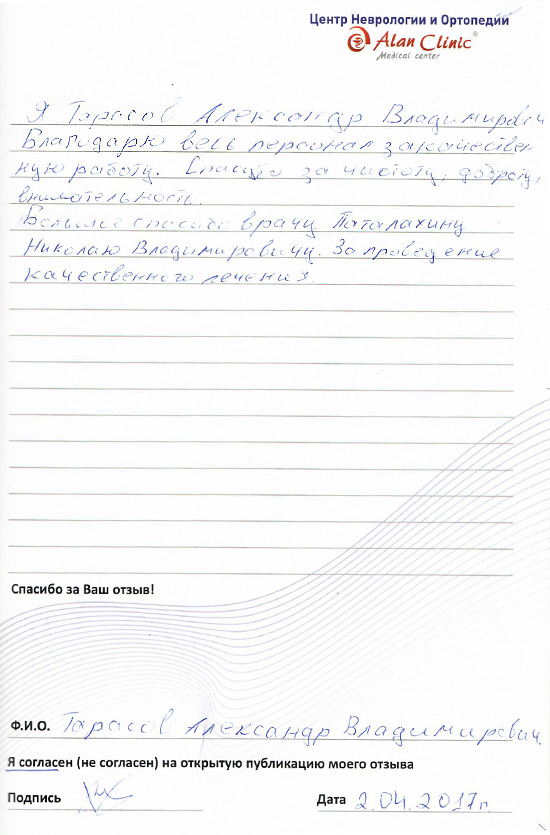 Центр Неврологии и Ортопедии
Alan Clinic®
Medical center
Я Тарасов Александр Владимирович
Благодарю весь персонал за качествен
ную работу. Спасибо за чистоту, доброту,
внимательность.
Большие спасибо врачу Паталахину
Николаю Владимировичу. За проведение
качественного лечения.
Спасибо за Ваш отзыв!
Ф.И.О. Тарасов Александр Владимирович.
Я согласен (не согласен) на открытую публикацию моего отзыва
Подпись Дата 2.04.2017г.